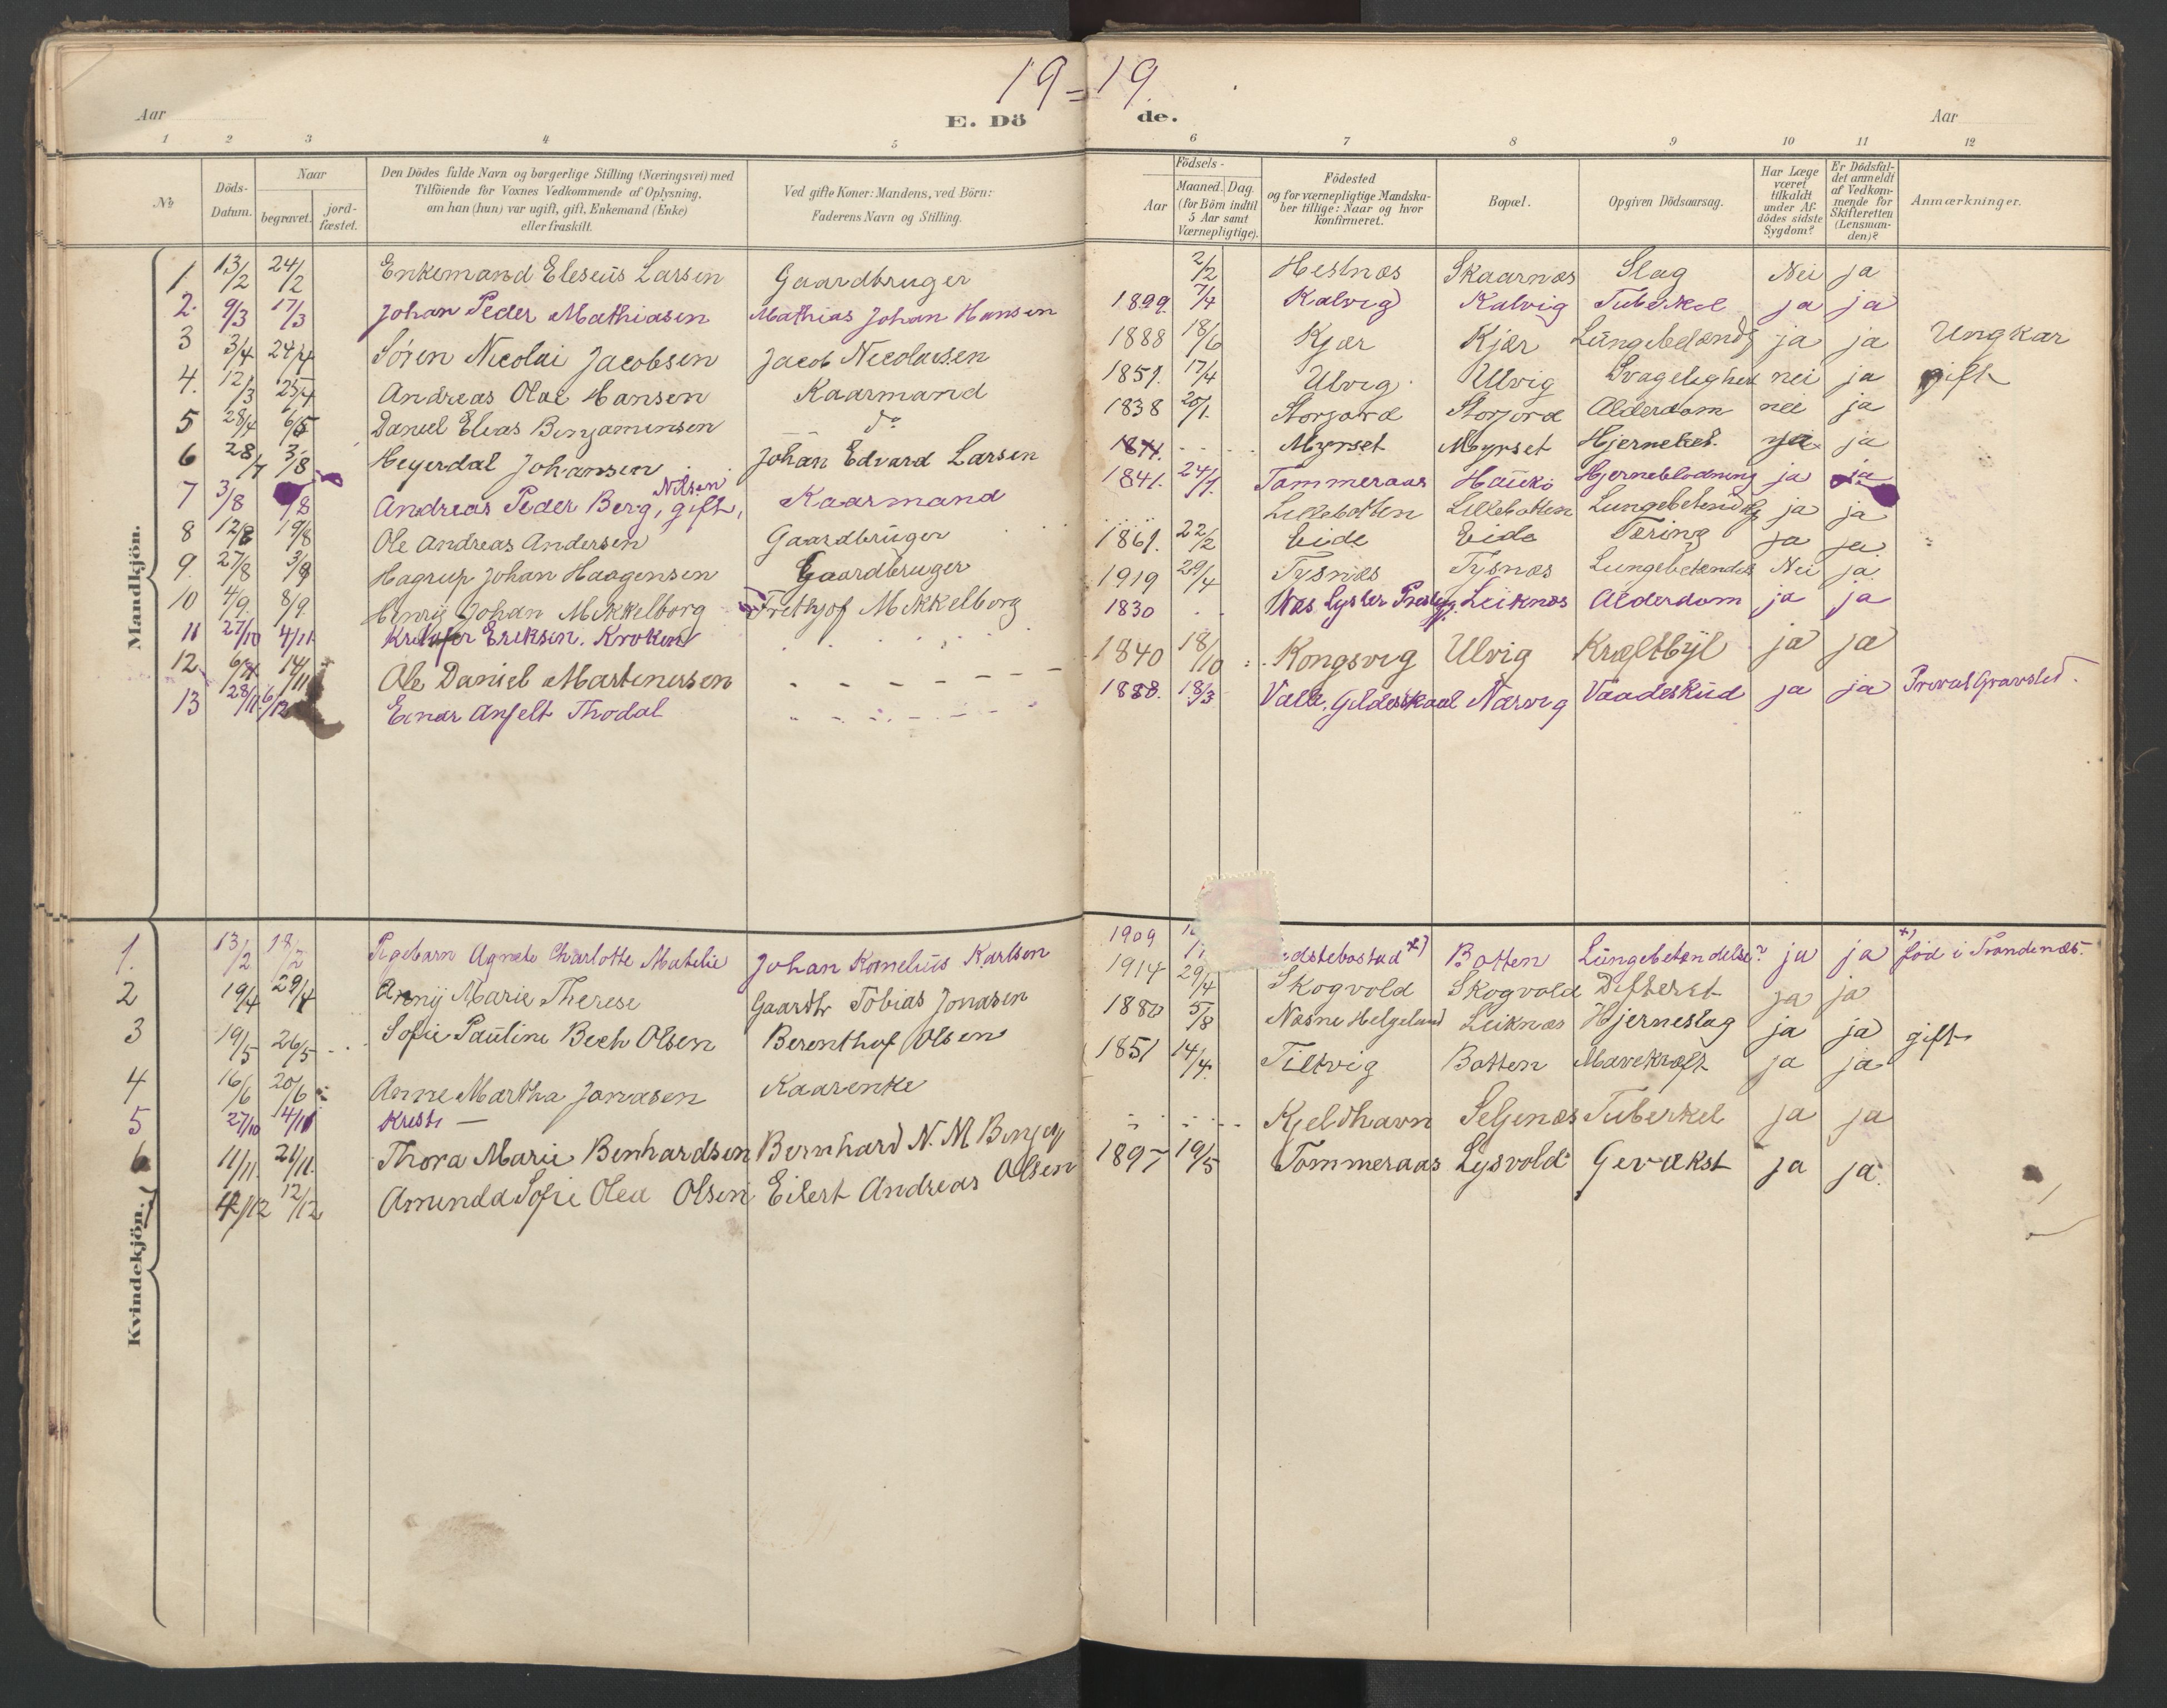 19=19.
Aar E. Dö de. Aar
1 2 3 4 5 6 7 8 9 10 11 12
No
Döds-Datum.
Naar
begravet. jord-fæstet.
Den Dödes fulde Navn og borgerlige Stilling (Næringsvei) med
Tilföiende for Voxnes Vedkommende af Oplysning,
om han (hun) var ugift, gift, Enkemand (Enke)
eller fraskilt.
Ved gifte Koner: Mandens, ved Börn:
Faderens Navn og Stilling.
Födsels-
Aar
Maaned. Dag.
(for Börn indtil
5 Aar samt
Værnepligtige).
Födested
og for værnepligtige Mandska-
ber tillige: Naar og hvor
konfirmeret.
Bopæl.
Opgiven Dödsaarsag.
Har Læge
været
tilkaldt
under Af-
dödes sidste
Sygdom?
Er Dödsfal-
det anmeldt
af Vedkom-
mende for
Skifteretten
(Lensman-
den)?
Anmærkninger.
Mandkjön.
1 13/2 24/2 Enkemand Eleseus Larsen Gaardbruger 2/2 Hestnæs Skaarnæs Slag Nei ja
2. 9/3 17/3 Johan Peder Mathiasen Mathias Johan Hansen 1899. 7/4 Kalvig Kalvig Tuberkel ja ja
3 3/4 24/4 Sören Nicolai Jacobsen Jacob Nicolaisen 1888 18/6 Kjær Kjær ja ja Ungkar
4. 12/3 25/4 Andreas Olai Hansen Kaarmand 1851. 17/4 Ulvig Ulvig Svagelighet nei ja gift
5 28/4 6/5 Daniel Elias Benjaminsen do 1838 20/1. Storjord Storjord Alderdom nei ja
6 28/7 3/8 Heyerdal Johansen Johan Edvard Larsen Myrset Myrset ja ja
7 3/8 /8 Andreas Peder Berg Nilsen, gift, Kaarmand 1841. 24/1. Tommeraas Haukö Hjerneblödning ja ja
8 12/8 19/8 Ole Andreas Andersen Gaardbruger Lillebotten Lillebotten ja ja
9. 27/8 3/9 Hagrup Johan Haagensen Gaardbruger 1861. 22/2 Eide Eide Tæring ja ja.
10 4/9. 8/9. Henrij Johan Mikkelborg Frithjof Mikkelborg 1919 29/4 Tysnæs Tysnæs Lungebetændels Nei ja
11 27/10 4/11 Kristofer Eriksen. Kroken 1830 Næs Lyster Prestegj. Leiknæs Alderdom ja ja
12 6/11 14/11 Ole Daniel Martinussen 1840 18/10 Kongsvig Ulvig Kræftbyl ja ja
13 28/11 6/12 Einar Anfelt Thodal 1888. 18/3 Valle, Gildeskaal Narvig Vaadeskud ja ja Privat Gravsted.
Kvindekjön.
1. 13/2 18/2 Pigebarn Agnete Charlotte Mathilie Johan Kornelius Karlsen 1909 edstebostad *) Botten Lungebetændelse? ja ja *) föd i Trondenæs.
2 19/4 29/4 Annij Marie Therese Gaardbr Tobias Jonasen 1914 29/4 Skogvold Skogvold Difterit ja ja
3 19/5 26/5 Sofie Pauline Bech Olsen Berenthof Olsen 1880 5/8 Næsne Helgeland Leiknæs Hjerneslag ja ja gift
4 16/6 20/6 Anne Martha Jonasen Kaarenke 1851 14/4. Tiltvig Botten Mavekræft ja ja
5 27/10 4/11 Kristi —
6 11/11. 21/11. Thora Marie Benhardsen Bernhard N. M Benj Kjeldhavn Seljenæs Tuberkel ja ja
7 4/12 12/12 Amunda Sofie Olea Olsen Eilert Andreas Olsen 1897 19/5 Tommeraas Lysvold Gevækst ja ja.